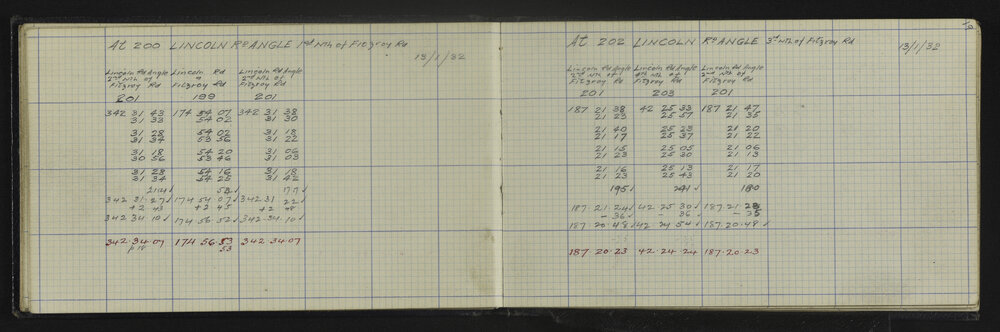 At 200 LINCOLN Rd ANGLE 1st Nth of Fitzroy Rd
13/1/32
Lincoln Rd Angle Lincoln Rd Lincoln Rd Angle
2nd Nth of & 2nd Nth of
Fitzroy Rd Fitzroy Rd Fitzroy Rd
201 199 201
342 31 43 174 54 07 342 31 38
31 33 54 02 31 30
31 28 54 02 31 18
31 34 53 56 31 22
31 18 54 20 31 06
30 56 53 46 31 03
31 28 54 16 31 18
31 34 54 25 31 42
214 58 177
342 31 27 174 54 07 342 31 22
+2 43 +2 45 +2 48
342 34 10 174 56 52 342 34 10
342 34 07 174 56 53 342 34 07
p18 53
At 202 LINCOLN Rd ANGLE 3rd Nth of Fitzroy Rd
13/1/32
Lincoln Rd Angle Lincoln Rd Angle Lincoln Rd Angle
2nd Nth of 4th Nth of 2nd Nth of
Fitzroy Rd Fitzroy Rd Fitzroy Rd
201 203 201
187 21 38 42 25 33 187 21 47
21 23 25 57 21 35
21 40 25 23 21 20
21 17 25 37 21 22
21 15 25 05 21 06
21 23 25 30 21 13
21 16 25 13 21 17
21 23 25 43 21 20
195 241 180
187 21 24 42 25 30 187 21 23
- 36 - 36 - 35
187 20 48 42 24 54 187 20 48
187 20 23 42 24 24 187 20 23